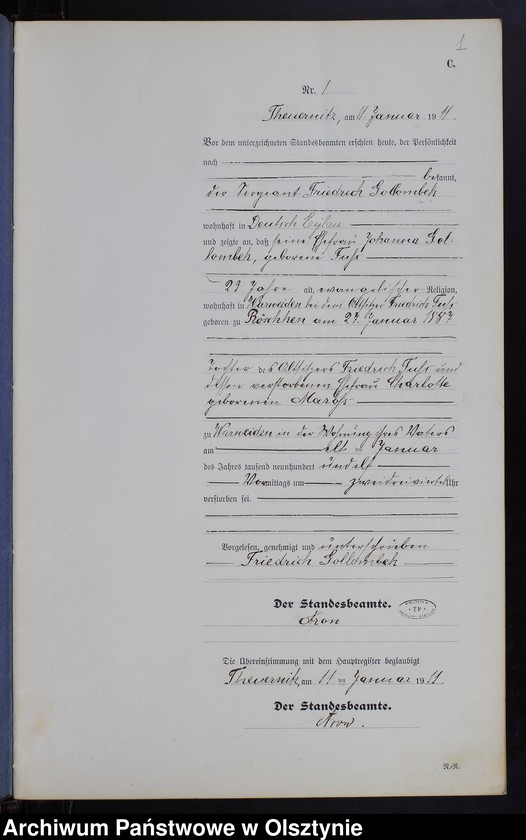 1
C.
Nr. 1
Theuernitz, am 11. Januar 1911.
Vor dem unterzeichneten Standesbeamten erschien heute, der Persönlichkeit
nach
bekannt,
der Sergeant Friedrich Gollombek
wohnhaft in Deutsch Eylau
und zeigte an, daß seine Ehefrau Johanna Gol-
lombek, geborene Fuhs
23 Jahre alt, evangelischer Religion,
wohnhaft in Warweiden bei dem Altsitzer Friedrich Fuhs
geboren zu am 27. Januar 1887
Tochter des Altsitzers Friedrich Fuhs und
dessen verstorbenen Ehefrau Charlotte
geborenen
zu Warweiden in der Wohnung ihres Vaters
am elf ten Januar
des Jahres tausend neunhundert und elf
Vormittags um zweidreiviertel Uhr
verstorben sei.
Vorgelesen, genehmigt und unterschrieben
Friedrich Gollombek
Der Standesbeamte.
42
Die Übereinstimmung mit dem Hauptregister beglaubigt
Theuernitz, am 11 ten Januar 1911
Der Standesbeamte.
Archiwum Państwowe w Olsztynie